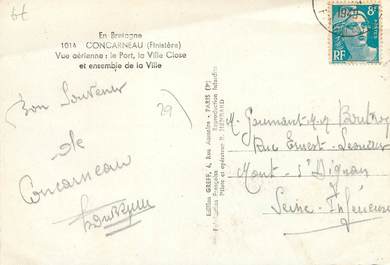 En Bretagne
1014 - CONCARNEAU (Finistère)
Vue aérienne : le Port, la Ville Close
et ensemble de la Ville
Bon Souvenir
de
Concarneau
29
Edition GREFF, 4, Rue - PARIS
Fabrication Française - Reproduction Interdite
Pilote et opérateur R. HENRARD
8F
RF
M. Gourmant
Rue Ernest-Lesueur
Mont-St-Aignan
Seine-Inférieure